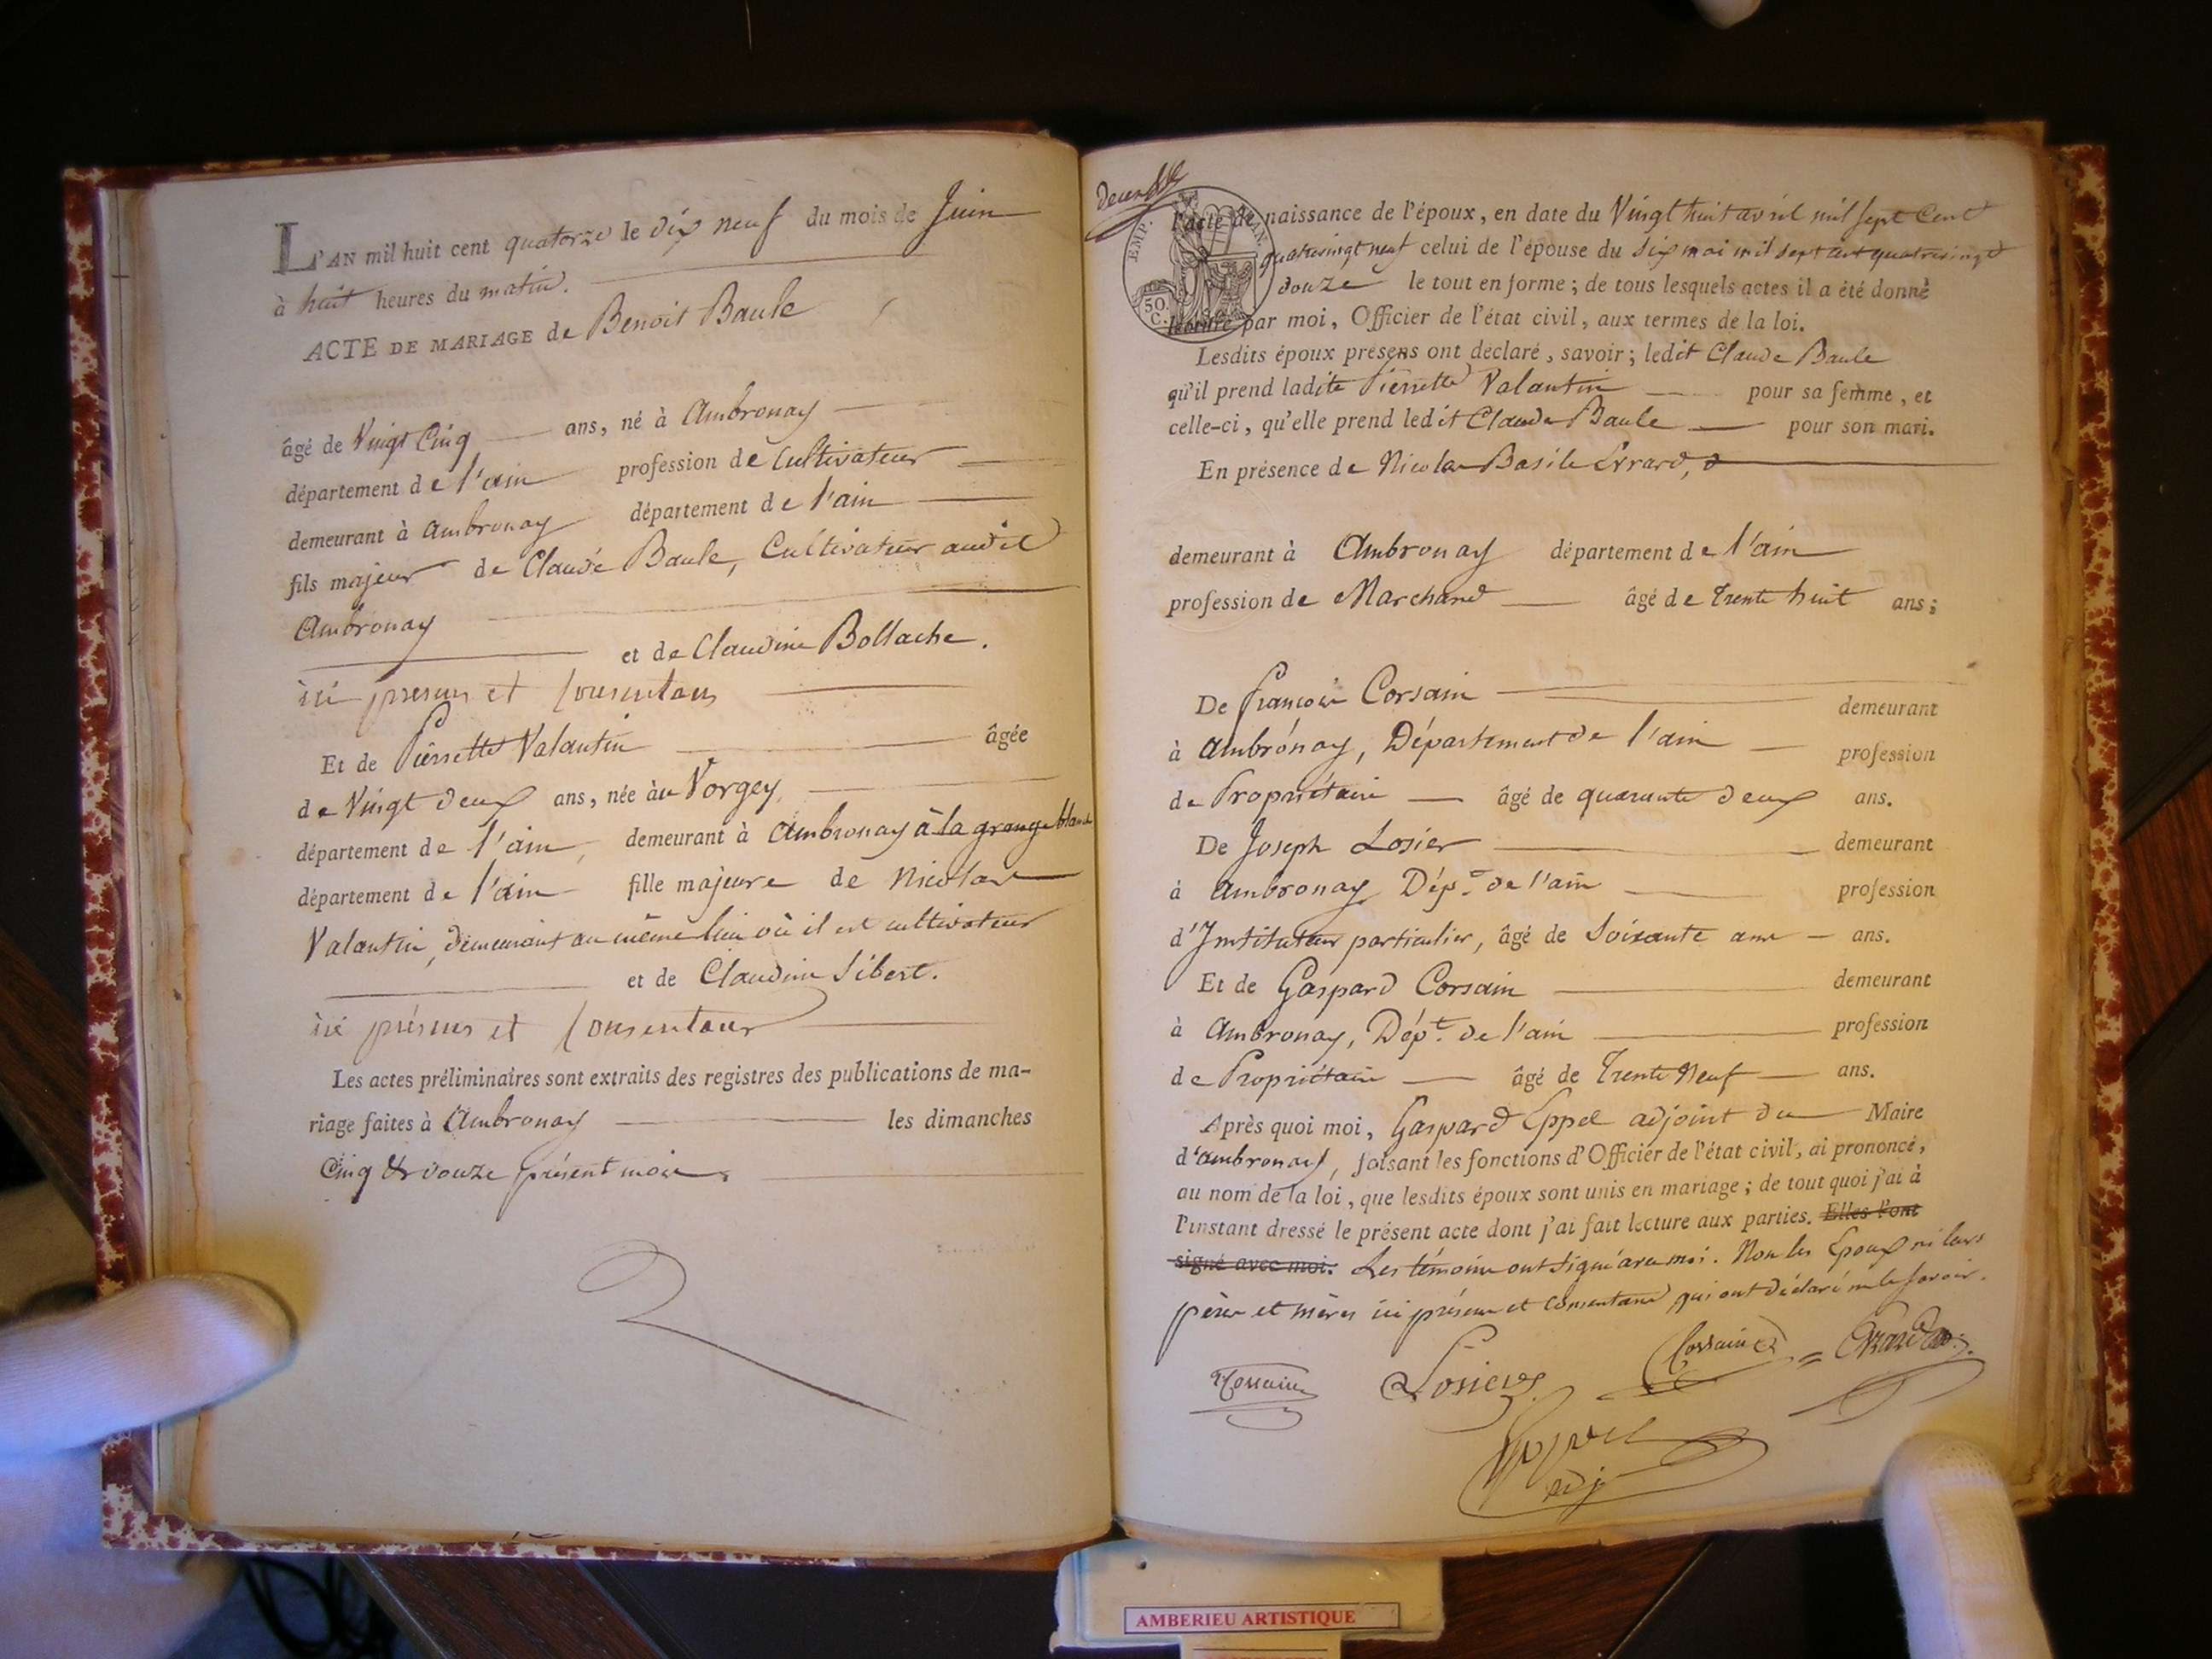 L'AN mil huit cent quatorze le dix neuf du mois de Juin
à huit heures du matin.
ACTE DE MARIAGE de Benoit Baule
âgé de Vingt Cinq ans, né à Ambronay
département de l'ain profession de Cultivateur
demeurant à Ambronay département de l'ain
fils majeur de Claude Baule, Cultivateur audit
Ambronay
et de Claudine Bollache.
ici présens et consentans
Et de Pierrette Valantin âgée
de Vingt deux ans, née au Vorgey
département de l'ain, demeurant à Ambronay à la grange blanche
département de l'ain fille majeure de Nicolas
Valantin, demeurant au même lieu où il est cultivateur
et de Claudine Sibert.
ici présens et consentans
Les actes préliminaires sont extraits des registres des publications de ma-
riage faites à Ambronay les dimanches
Cinq & douze présent mois.
EMP. 50. C.
l'acte de naissance de l'époux, en date du Vingt huit avril mil sept Cent
quatrevingt neuf celui de l'épouse du dix mai mil sept cent quatrevingt
douze le tout en forme; de tous lesquels actes il a été donné
lecture par moi, Officier de l'état civil, aux termes de la loi.
Lesdits époux présens ont déclaré, savoir; ledit Claude Baule
qu'il prend ladite Pierrette Valantin pour sa femme, et
celle-ci, qu'elle prend ledit Claude Baule pour son mari.
En présence de Nicolas Basile Errard,
demeurant à Ambronay département de l'ain
profession de Marchand âgé de Trente huit ans;
De François Corsain demeurant
à Ambronay, Département de l'ain profession
de Propriétaire âgé de quarante deux ans.
De Joseph Losier demeurant
à Ambronay Dépt de l'ain profession
d'Instituteur particulier, âgé de Soixante ans ans.
Et de Gaspard Corsain demeurant
à Ambronay, Dépt. de l'ain profession
de Propriétaire âgé de Trente Neuf ans.
Après quoi moi, Gaspard Eppel adjoint du Maire
d'Ambronay, faisant les fonctions d'Officier de l'état civil, ai prononcé,
au nom de la loi, que lesdits époux sont unis en mariage; de tout quoi j'ai à
l'instant dressé le présent acte dont j'ai fait lecture aux parties. Elles l'ont
signé avec moi. Les témoins ont signé avec moi. Non les Epoux ni leurs
pères et mères ici présens et consentans qui ont déclaré ne le savoir.
Corsain Losier Corsain
adj
AMBERIEU ARTISTIQUE